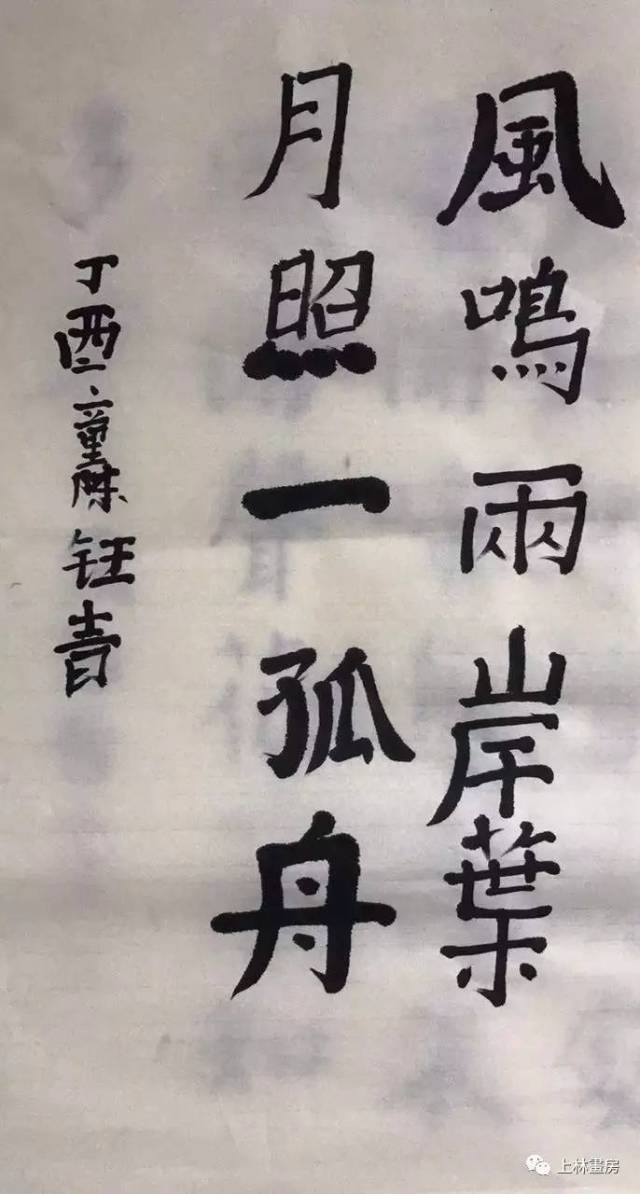 風鳴兩岸葉
月照一孤舟
丁酉童陳鈺青
上林畫房